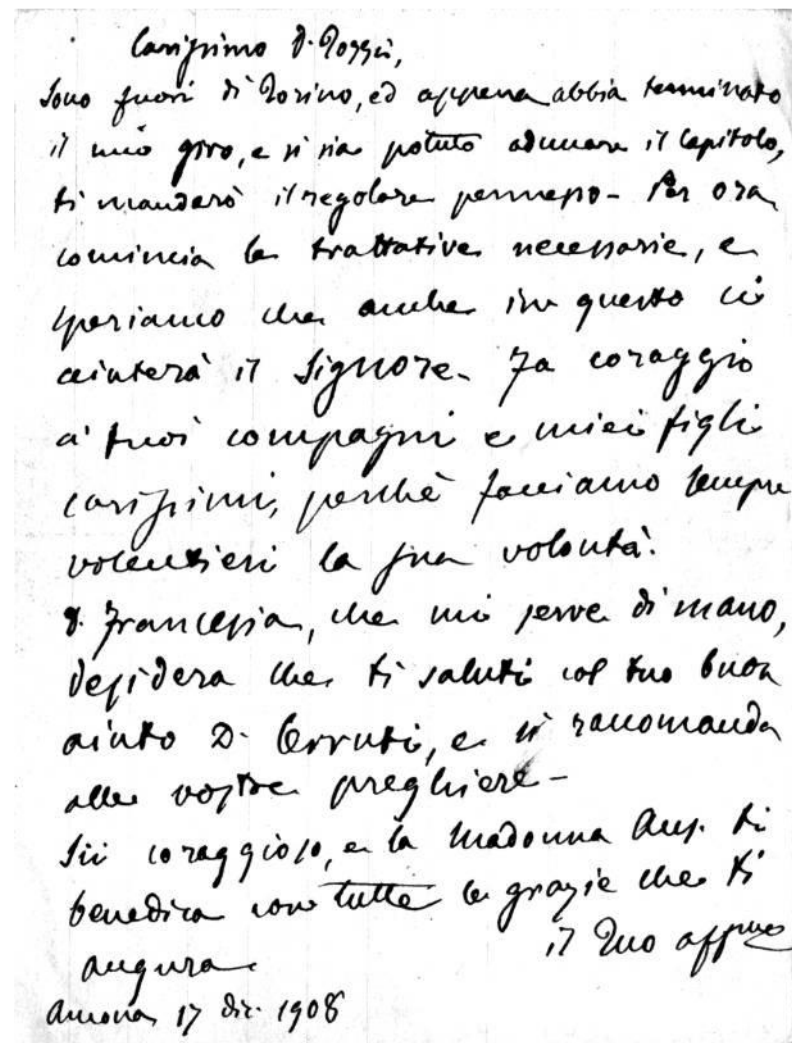 Carissimo D. Poggio,
Sono fuori di Torino, ed appena abbia terminato
il mio giro, e si sia potuto adunare il Capitolo,
ti manderò il regolare permesso - Per ora
comincia le trattative necessarie, e
speriamo che anche in questo ci
aiuterà il Signore - Fa coraggio
a' tuoi compagni e miei figli
carissimi, perché facciamo sempre
volentieri la sua volontà.
D. Francesia, che mi serve di mano,
desidera che ti saluti col tuo buon
aiuto D. Cerruti, e si raccomanda
alle vostre preghiere -
Sii coraggioso, e la Madonna Aus. ti
benedica con tutte le grazie che ti
augura il Tuo aff.mo
Ancona 17 dic. 1908